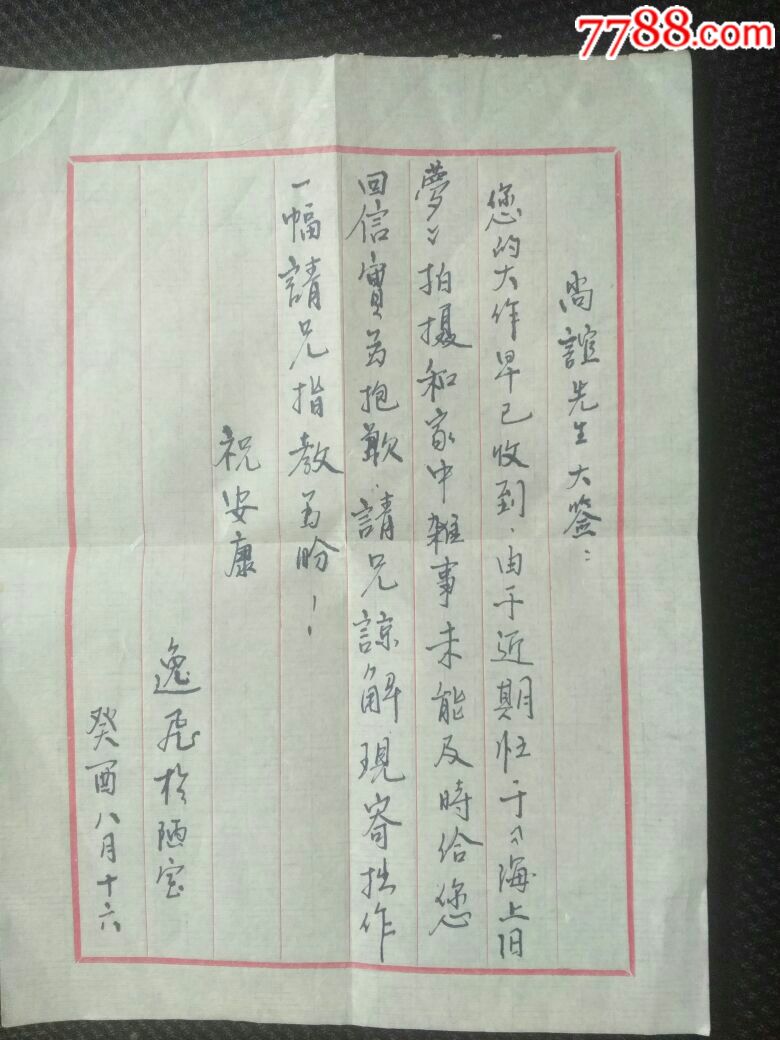 7788.com
尚誼先生大鉴：
您的大作早已收到，由于近期忙于《海上旧
夢》拍摄和家中雜事未能及時给您
回信實为抱歉，請兄諒解，現寄拙作
一幅請兄指教为盼！
祝安康
逸飛於陋室
癸酉八月十六